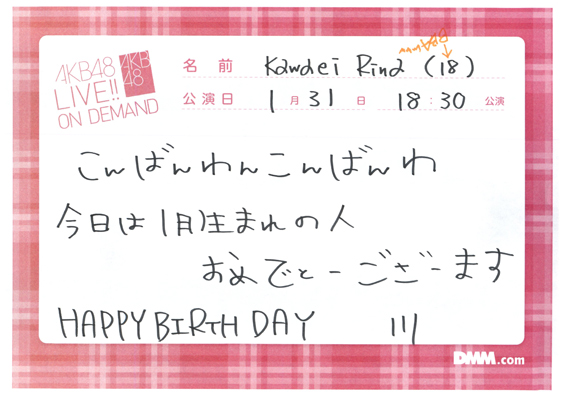 AKB48
LIVE!!
ON DEMAND
AKB
48
名前 Kawaei Rina (18)
公演日 1月31日 18:30公演
こんばんわんこんばんわ
今日は1月生まれの人
おめでとーございーます
HAPPY BIRTHDAY 川
DMM.com